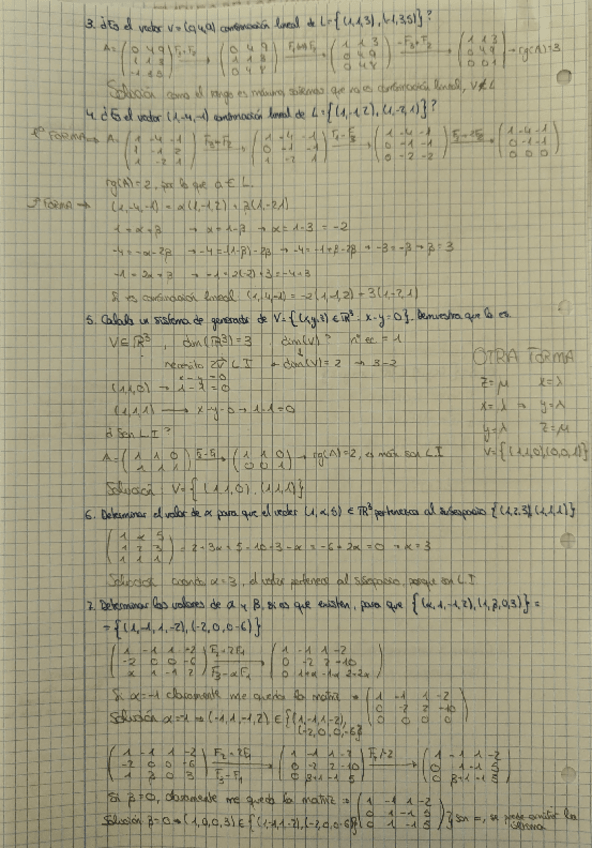 3. ¿Es el vector V=(0,4,9) combinación lineal de L={(1,1,3),(-1,3,5)}?
A= (0 4 9 / 1 1 3 / -1 3 5) → (0 4 9 / 1 1 3 / 0 4 8) → (1 1 3 / 0 4 9 / 0 4 8) → (1 1 3 / 0 4 9 / 0 0 1) → rg(A)=3
Solución como el rango es máximo, sabemos que no es combinación lineal, V∉L
4. ¿Es el vector (1,-4,-1) combinación lineal de L={(1,-1,2),(1,-2,1)}?
1ª FORMA → A= (1 -4 -1 / 1 -1 2 / 1 -2 1) → (1 -4 -1 / 0 -1 -1 / 1 -2 1) → (1 -4 -1 / 0 -1 -1 / 0 -2 -2) → (1 -4 -1 / 0 -1 -1 / 0 0 0)
rg(A)=2, por lo que a ∈ L.
FORMA → (1,-4,-1) = α(1,-1,2) + β(1,-2,1)
1=α+β → α=1-β → α=1-3=-2
-4=-α-2β → -4=-(1-β)-2β → -4=-1+β-2β → -3=-β → β=3
-1=2α+β → -1=2(-2)+3=-4+3
Si es combinación lineal (1,-4,-1)=-2(1,-1,2)+3(1,-2,1)
5. Calcula un sistema de generador de V={(x,y,z) ∈ ℝ³ x-y=0}. Demuestra que lo es.
V∈ℝ³, dim(ℝ³)=3 dim(V)? nº ec = 1
necesito 2 V LI dim(V)=2 → 3-2
x-y=0
(1,1,0) → 1-1=0
(1,1,1) → x-y=0 → 1-1=0
¿Son L.I?
A= (1 1 0 / 1 1 1) → (1 1 0 / 0 0 1) → rg(A)=2, es máx son L.I
Solución: V={(1,1,0),(1,1,1)}
OTRA FORMA
z=μ x=λ
x=λ → y=λ
y=λ z=μ
V={(1,1,0),(0,0,1)}
6. Determinar el valor de α para que el vector (1,α,5) ∈ ℝ³ pertenezca al subespacio {(1,2,3),(1,1,1)}
(1 α 5 / 1 2 3 / 1 1 1) = 2+3α+5-10-3-α = -6+2α=0 → α=3
Solución cuando α=3, el vector pertenece al subespacio, porque son L.I
7. Determinar los valores de α y β, si es que existen, para que {(α,1,-1,2),(1,β,0,3)} =
={(1,-1,1,-2),(-2,0,0,-6)}
(1 -1 1 -2 / -2 0 0 -6 / α 1 -1 2) F₂+2F₁ F₃-αF₁ → (1 -1 1 -2 / 0 -2 2 -10 / 0 1+α -1-α 2+2α)
Si α=-1 claramente me queda la matriz → (1 -1 1 -2 / 0 -2 2 -10 / 0 0 0 0)
Solución α=-1 → (-1,1,-1,2) ∈ {(1,-1,1,-2), (-2,0,0,-6)}
(1 -1 1 -2 / -2 0 0 -6 / 1 β 0 3) F₂+2F₁ F₃-F₁ → (1 -1 1 -2 / 0 -2 2 -10 / 0 β+1 -1 5) → (1 -1 1 -2 / 0 1 -1 5 / 0 β+1 -1 5)
Si β=0, claramente me queda la matriz → (1 -1 1 -2 / 0 1 -1 5 / 0 1 -1 5) } son =, se puede omitir la última
Solución β=0 → (1,0,0,3) ∈ {(1,-1,1,-2),(-2,0,0,-6)}